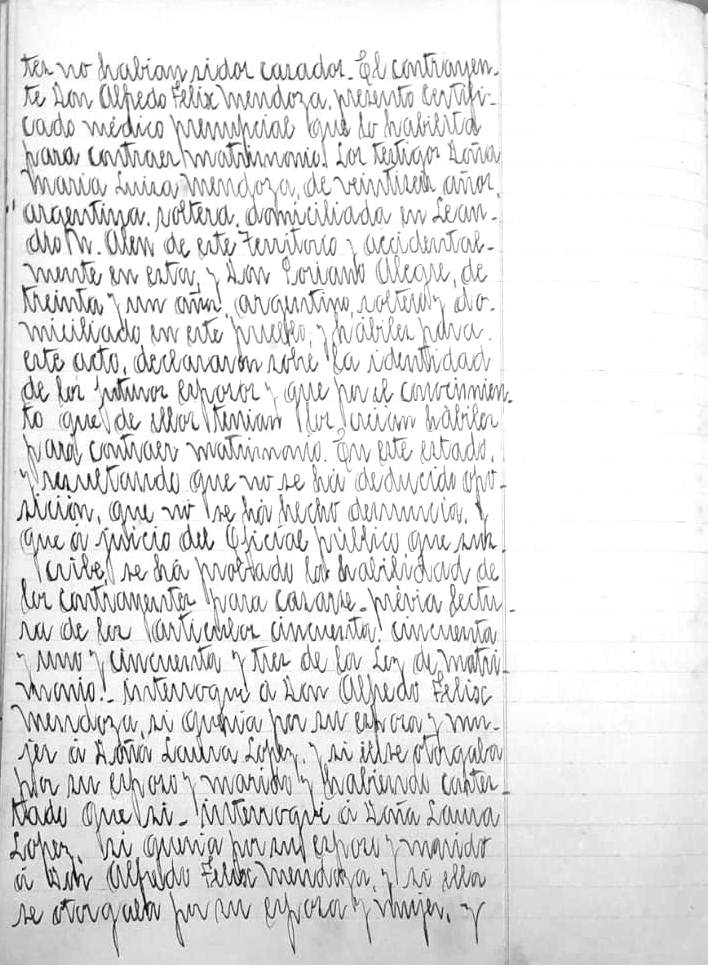 tes no habian sidos casados_ El contrayen-
te Don Alfredo Felix Mendoza, presento certifi-
cado médico prenupcial que lo habilita
para contraer matrimonio. Los testigos Doña
Maria Luisa Mendoza, de veintiseis años,
argentina, soltera, domiciliada en Lean-
dro N. Alen de este Territorio y accidental-
mente en esta, y Don Alegre, de
treinta y un años, argentino, soltero y do-
miciliado en este pueblo, y hábiles para
este acto, declararon sobre la identidad
de los futuros esposos y que por el conocimien-
to que de ellos tenian los creian hábiles
para contraer matrimonio. En este estado,
y resultando que no se há deducido opo-
sición, que no se há hecho denuncia, y
que á juicio del Oficial público que sus-
cribe, se há probado la habilidad de
los contrayentes para casarse_ prévia lectu-
ra de los articulos cincuenta, cincuenta
y uno y cincuenta y tres de la Ley de matri-
monio._ interrogué á Don Alfredo Felix
Mendoza, si queria por su esposa y mu-
jer á Doña Laura Lopez, y si el se otorgaba
por su esposo y marido y habiendo contes-
tado que si_ interrogué á Doña Laura
Lopez, si queria por su esposo y marido
á Don Alfredo Felix Mendoza, y si ella
se otorgaba por su esposa y mujer, y